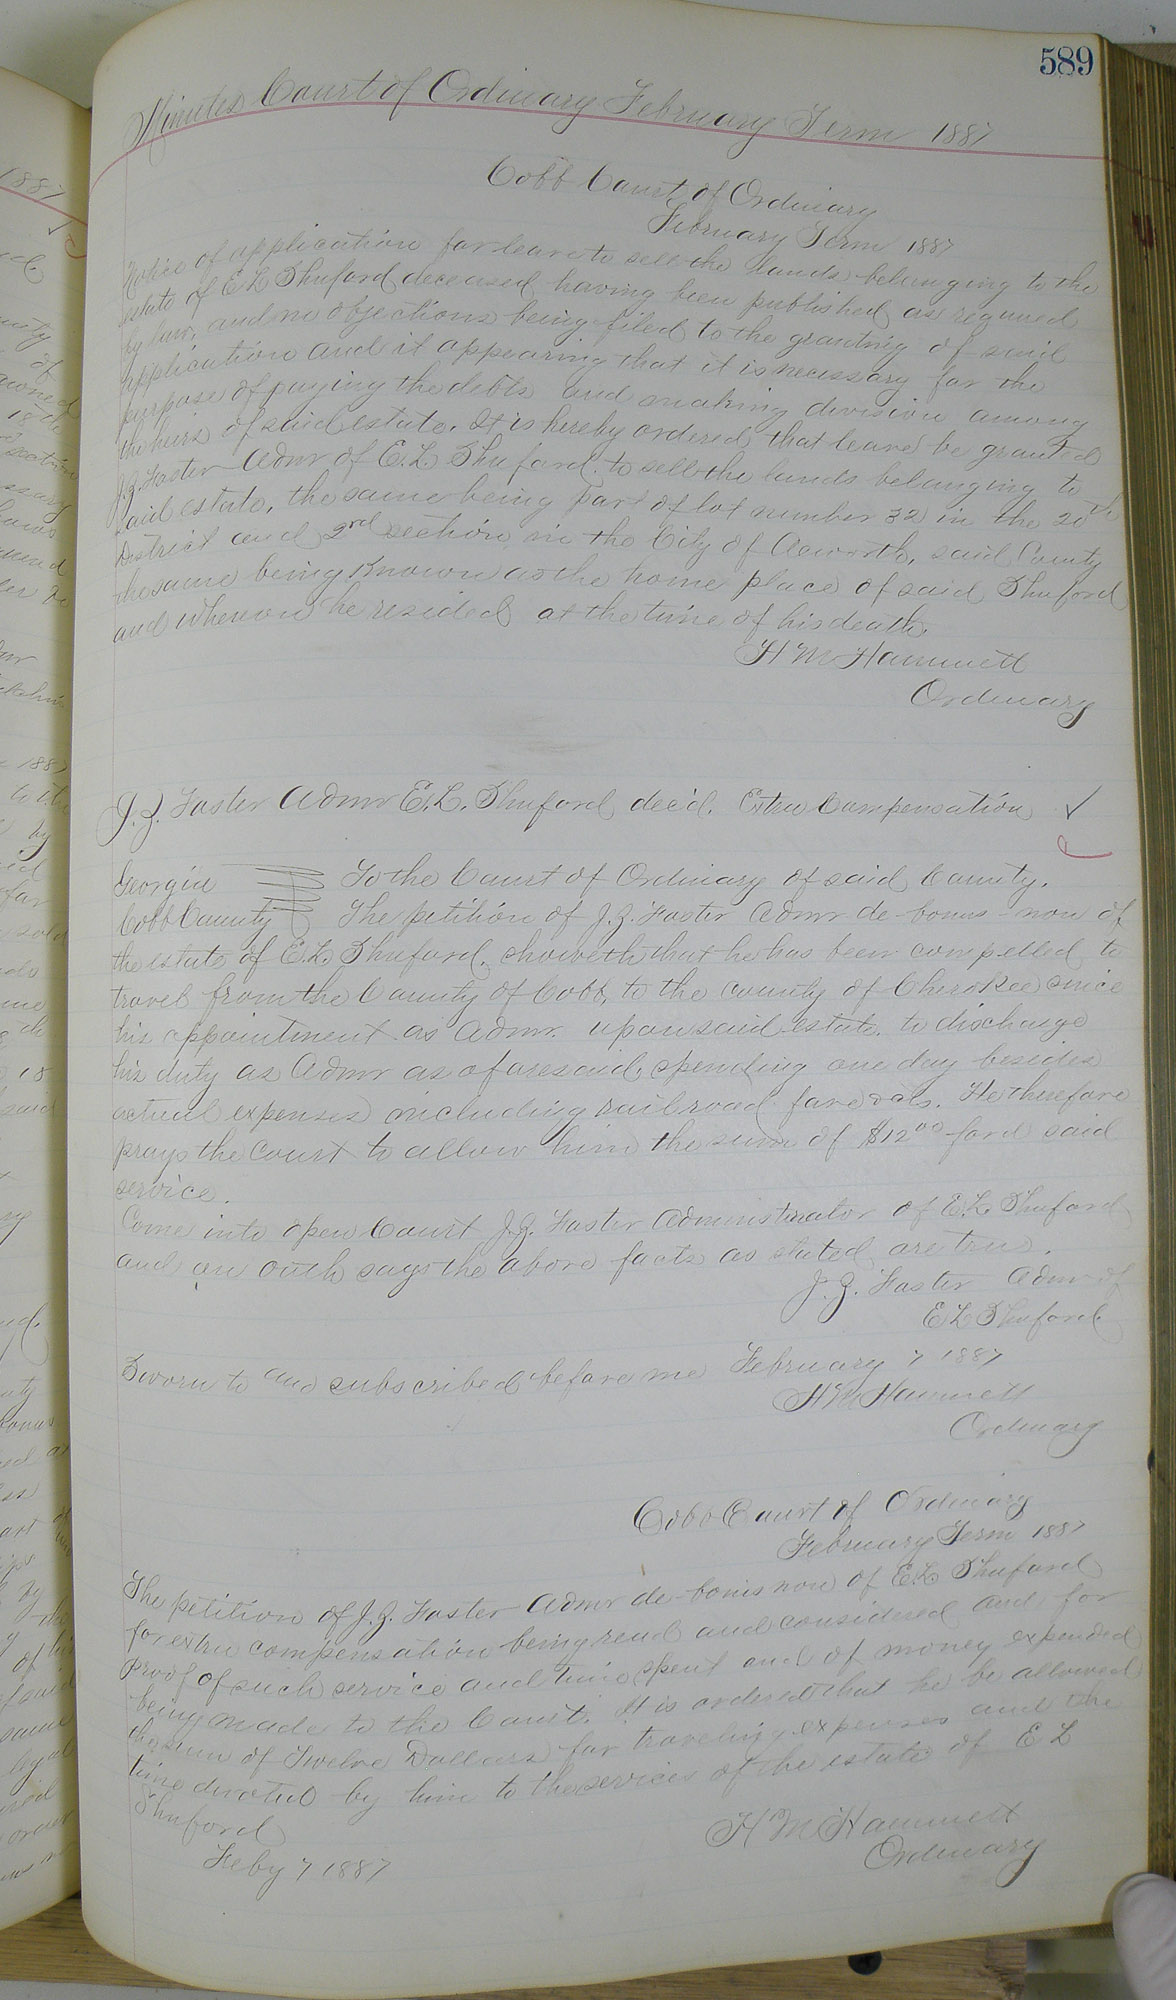 589
Minutes Court of Ordinary February Term 1887
Cobb Court of Ordinary
February Term 1887
Notice of application for leave to sell the lands belonging to the
estate of E L Shuford deceased having been published as required
by law, and no objections being filed to the granting of said
application and it appearing that it is necessary for the
purpose of paying the debts and making division among
the heirs of said estate. It is hereby ordered that leave be granted
J. Z. Foster Admr of E. L. Shuford to sell the lands belonging to
said estate, the same being part of lot number 32 in the 20th
District and 2nd section in the City of Acworth, said County
the same being known as the home place of said Shuford
and whereon he resided at the time of his death.
H M Hammett
Ordinary
J. Z. Foster Admr E. L. Shuford dec'd. Extra Compensation
Georgia To the Court of Ordinary of said County.
Cobb County The petition of J. Z. Foster Admr de bonus non of
the estate of E. L. Shuford, showeth that he has been compelled to
travel from the County of Cobb, to the county of Cherokee since
his appointment as Admr. upon said estate to discharge
his duty as Admr as aforesaid, spending one day besides
actual expenses including railroad fare &c. He therefore
prays the Court to allow him the sum of $12 00 ford said
service.
Come into open Court J. Z. Foster Administrator of E. L. Shuford
and on outh says the above facts as stated are true.
J. Z. Foster Admr of
E L Shuford
Sworn to and subscribed before me February 7 1887
H M Hammett
Ordinary
Cobb Court of Ordinary
February Term 1887
The petition of J. Z. Foster Admr de bonis non of E. L Shuford
for extra compensation being read and considered and for
proof of such service and time spent and of money expended
being made to the Court. It is ordered that he be allowed
the sum of Twelve Dollars for traveling expenses and the
time devoted by him to the services of the estate of E L
Shuford
H M Hammett
Feby 7 1887
Ordinary